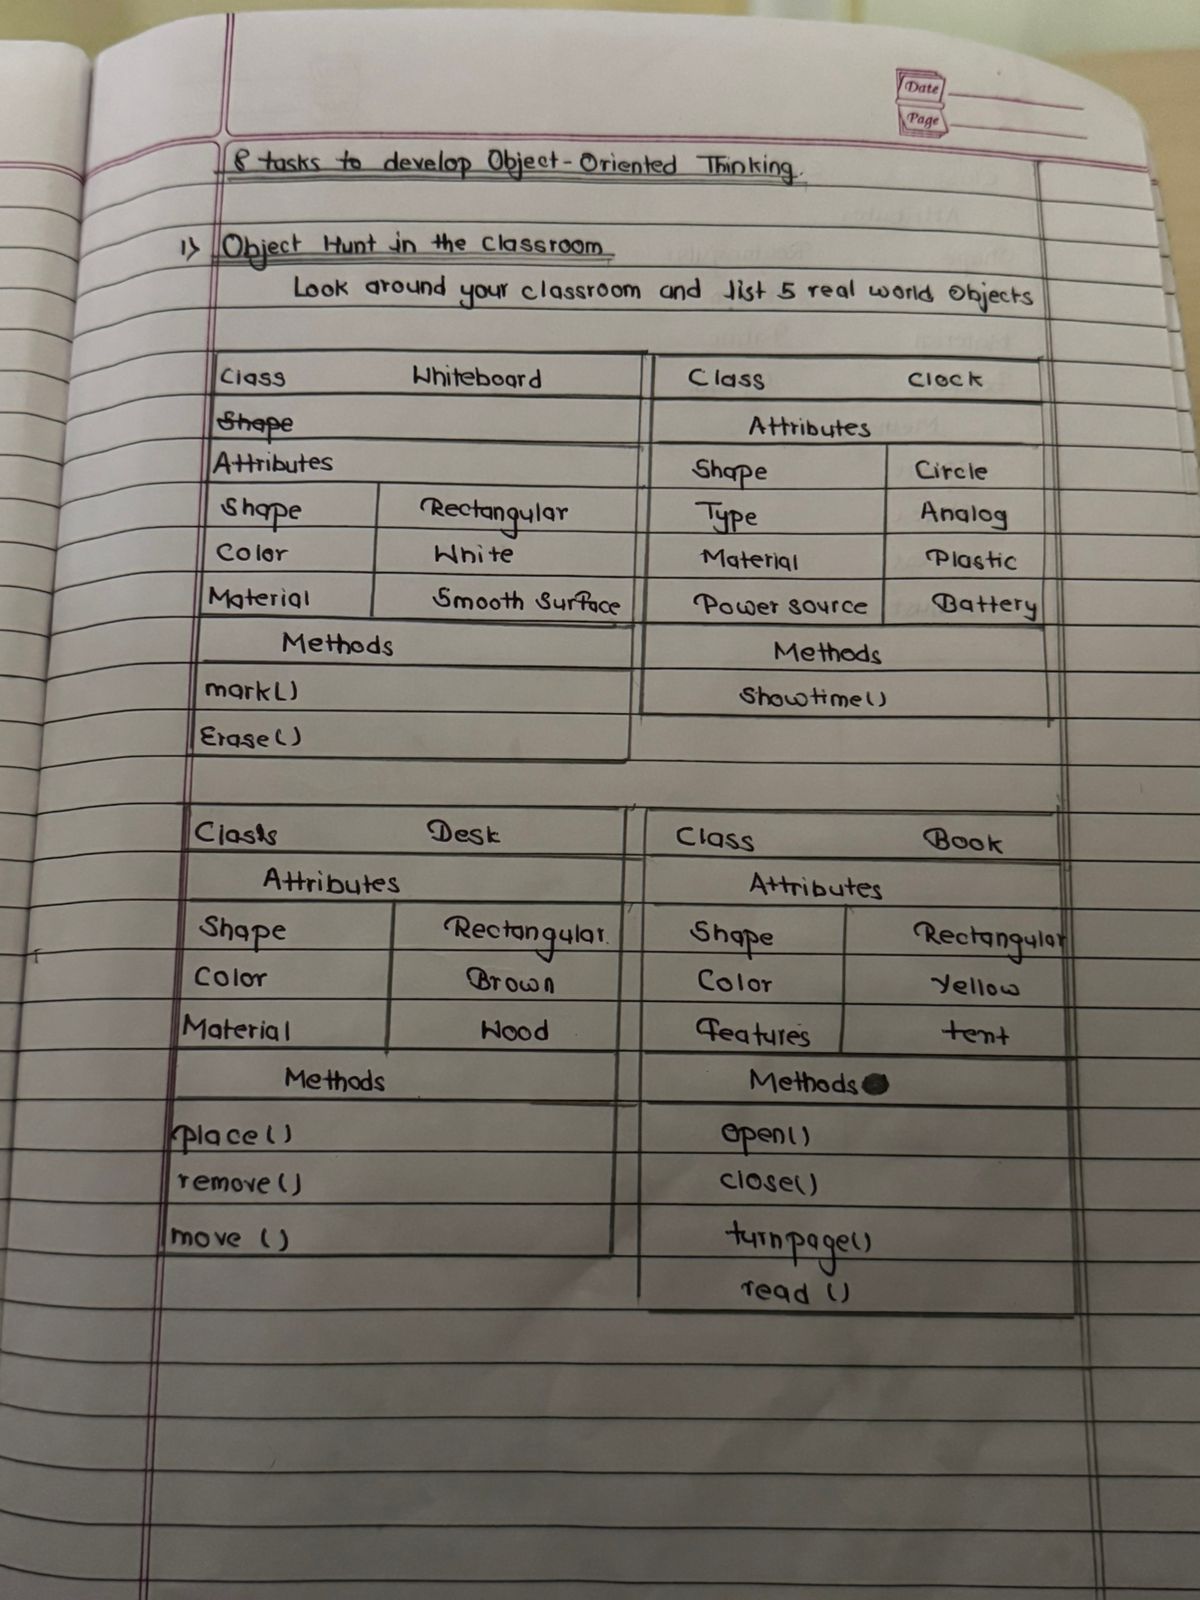 Date
Page
8 tasks to develop Object-Oriented Thinking.
1) Object Hunt in the Classroom
Look around your classroom and list 5 real world Objects
Class Whiteboard
Shape
Attributes
Shape Rectangular
Color White
Material Smooth Surface
Methods
mark()
Erase()
Class Clock
Attributes
Shape Circle
Type Analog
Material Plastic
Power source Battery
Methods
Showtime()
Class Desk
Attributes
Shape Rectangular.
Color Brown
Material Wood
Methods
place()
remove()
move ()
Class Book
Attributes
Shape Rectangular
Color Yellow
Features tent
Methods
open()
close()
turnpage()
read ()